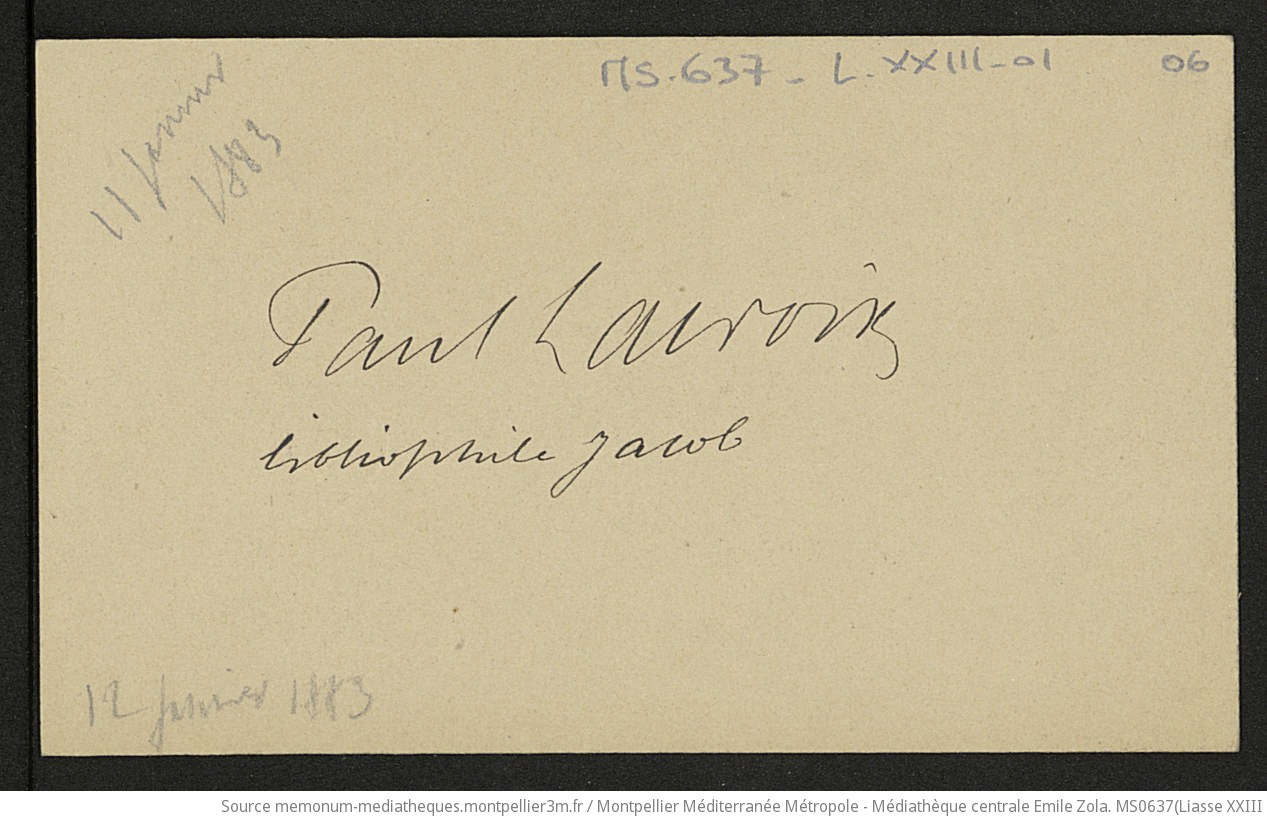 MS.637 - L.XXIII-01 06
11 Janvier
1883
Paul Lacroix
bibliophile Jacob
12 Janvier 1883
Source memonum-mediatheques.montpellier3m.fr / Montpellier Méditerranée Métropole - Médiathèque centrale Emile Zola. MS0637(Liasse XXIII